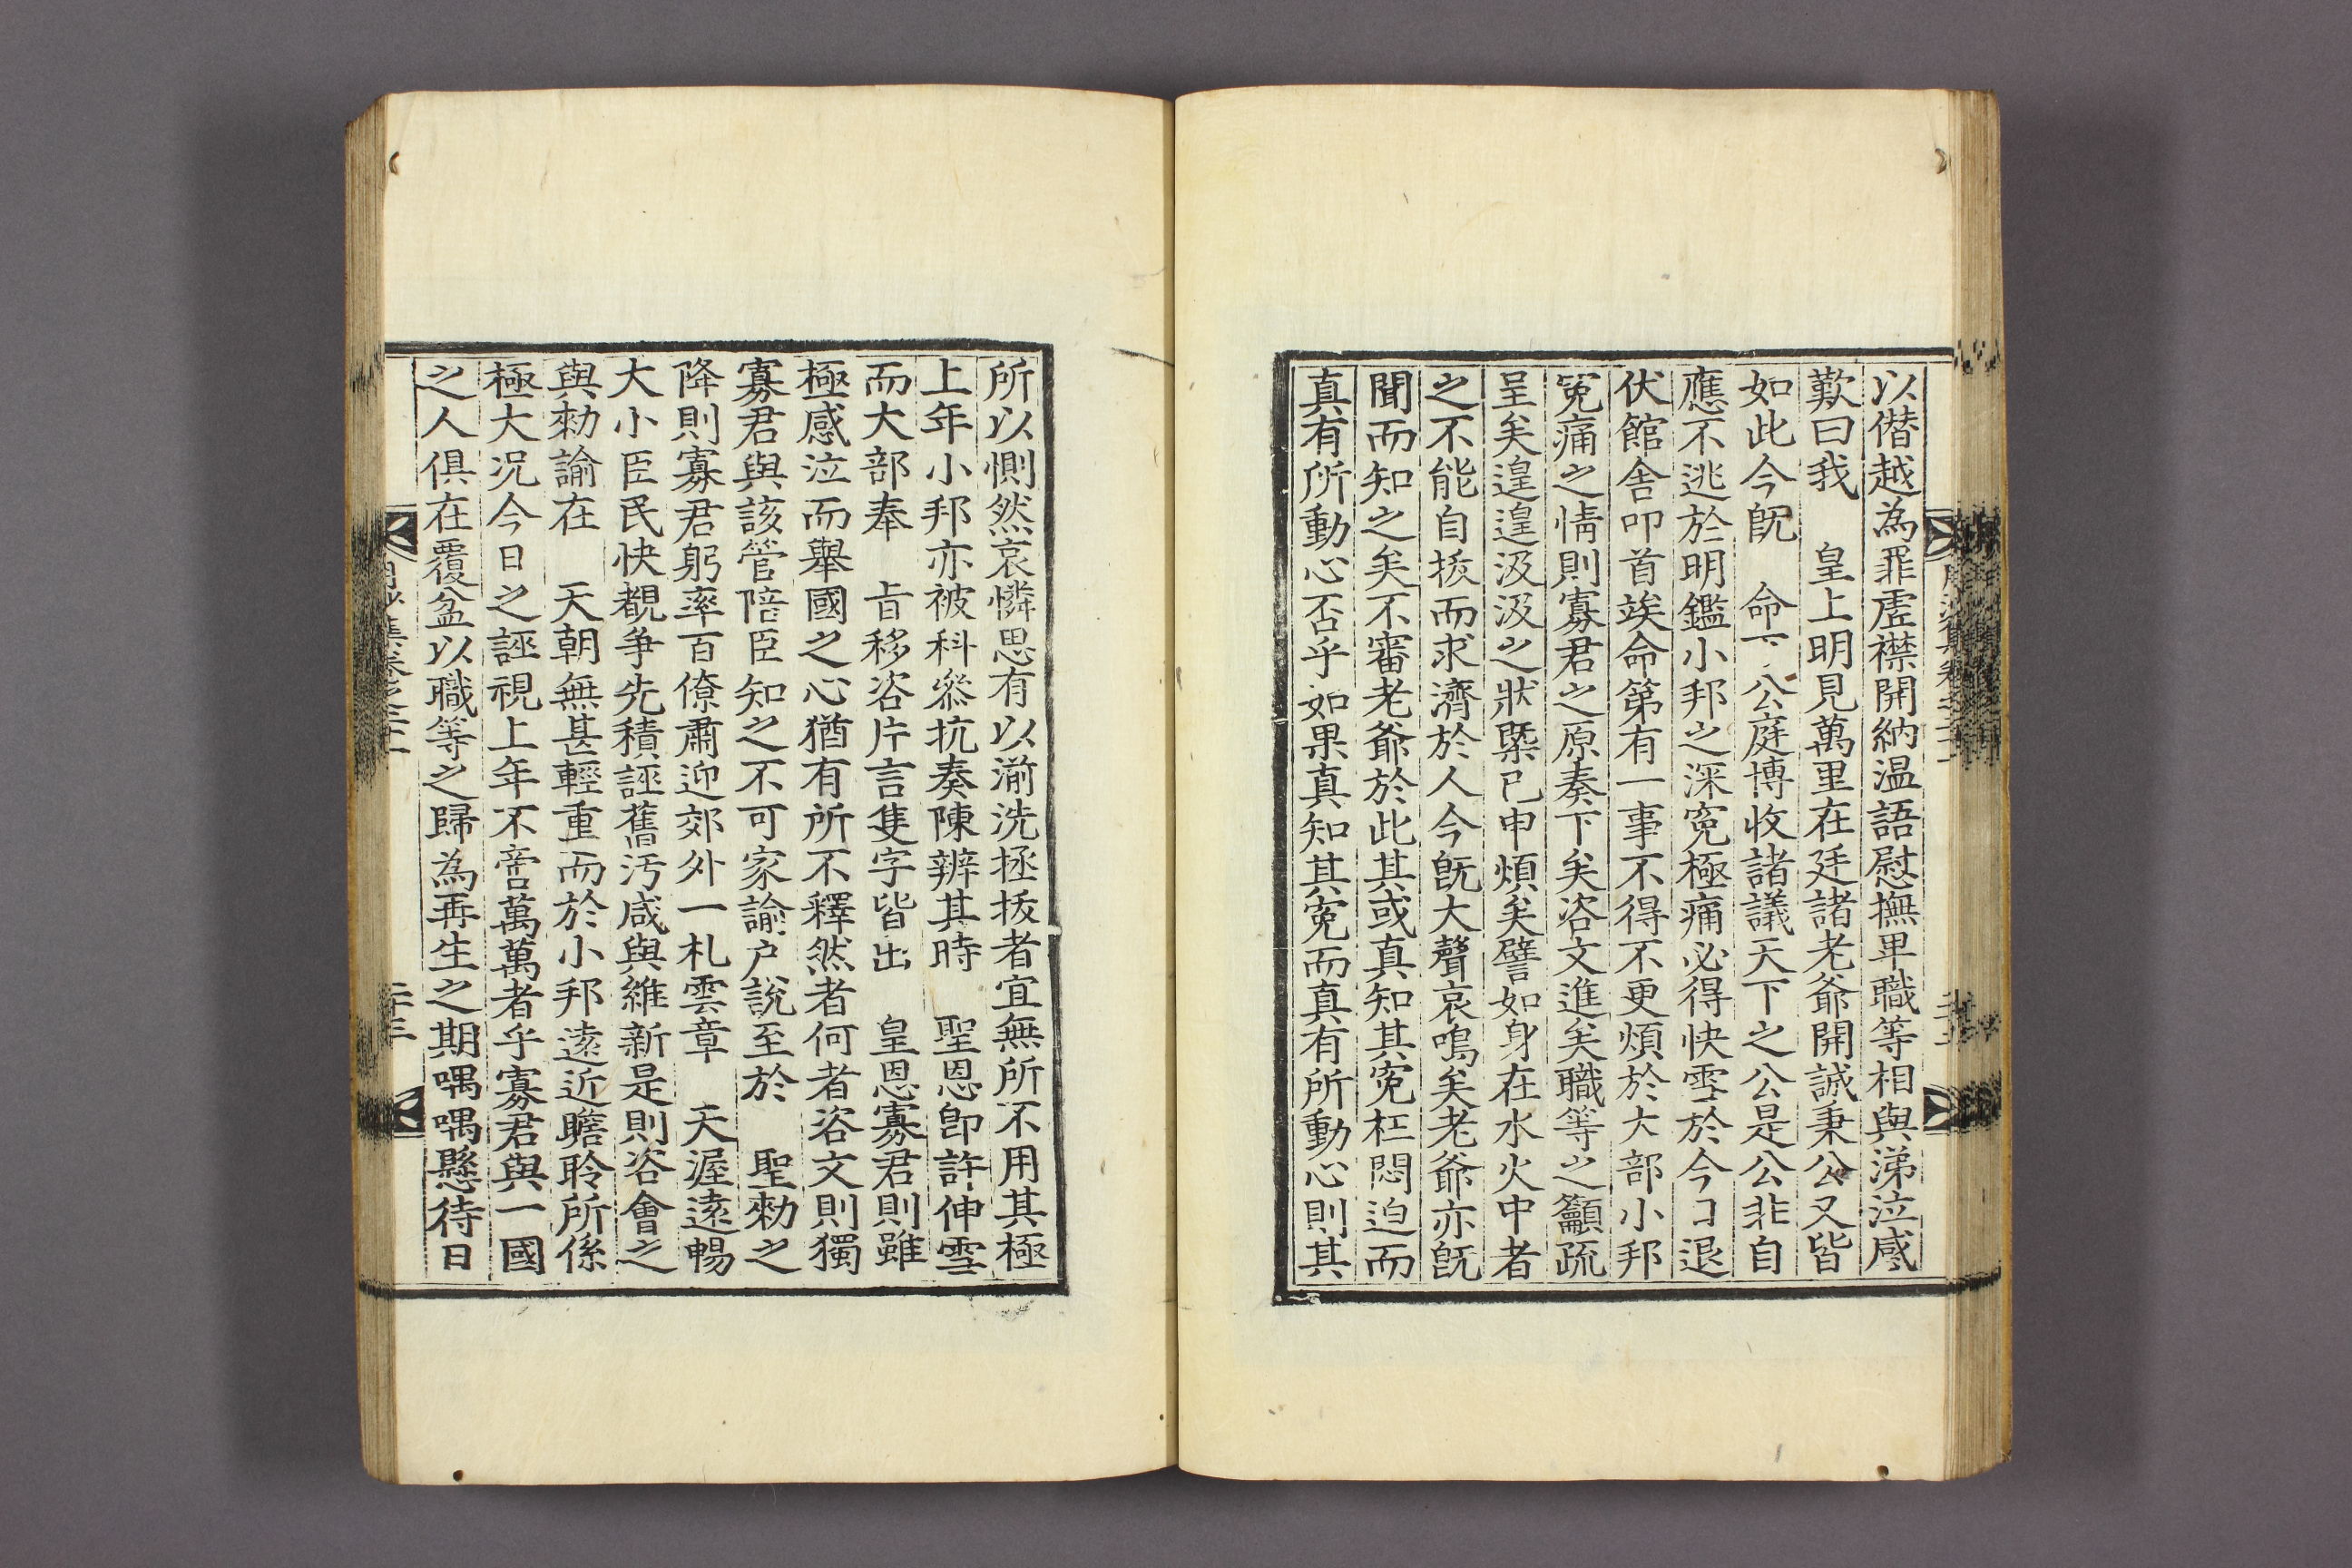 以僭越為罪虛襟開納温語慰撫畢職等相與涕泣感
歎曰我　皇上明見萬里在廷諸老爺開誠秉公又皆
如此今旣　命下公庭博收諸議天下之公是公非自
應不逃於明鑑小邦之深寃極痛必得快雪於今日退
伏館舍叩首竢命第有一事不得不更煩於大部小邦
寃痛之情則寡君之原奏下矣咨文進矣職等之籲疏
呈矣遑遑汲汲之狀槩已申煩矣譬如身在水火中者
之不能自拔而求濟於人今旣大聲哀鳴矣老爺亦旣
聞而知之矣不審老爺於此其或真知其寃枉悶迫而
真有所動心否乎如果真知其寃而真有所動心則其
所以惻然哀憐思有以湔洗拯拔者宜無所不用其極
上年小邦亦被科叅抗奏陳辨其時　聖恩卽許伸雪
而大部奉　旨移咨片言隻字皆出　皇恩寡君則雖
極感泣而舉國之心猶有所不釋然者何者咨文則獨
寡君與該管陪臣知之不可家諭户說至於　聖勑之
降則寡君躬率百僚肅迎郊外一札雲章　天渥遠暢
大小臣民快覩争先積誣舊汚咸與維新是則咨會之
與勑諭在　天朝無甚輕重而於小邦遠近瞻聆所係
極大况今日之誣視上年不啻萬萬者乎寡君與一國
之人俱在覆盆以職等之歸為再生之期喁喁懸待日
月沙集卷之二十一
二十三